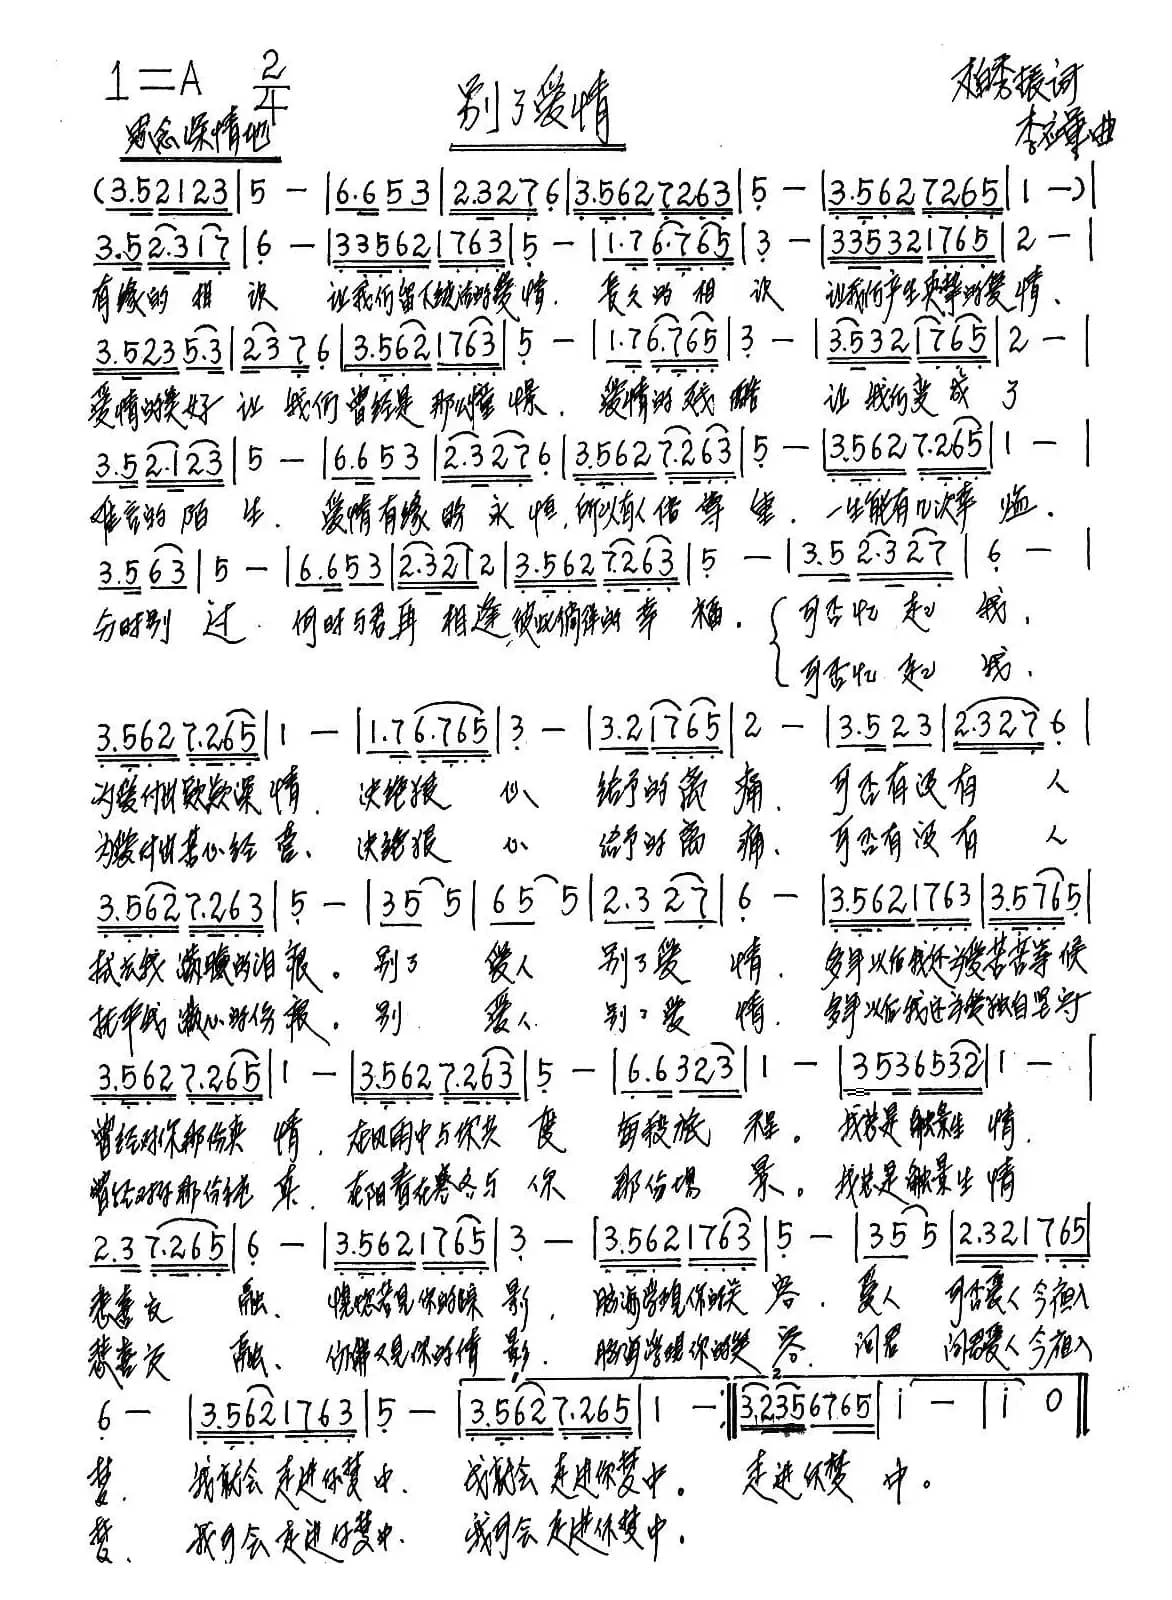 1=A 2/4 别了爱情 柏秀振词
思念深情地 李 曲
(3.52123|5 -|6.653|2.3276|3.5627263|5 -|3.5627265|1 -)|
3.52.317|6 -|335621763|5 -|1.76.765|3 -|335321765|2 -|
有缘的相识 让我们留下纯洁的爱情. 长久的相识 让我们产生真挚的爱情、
3.5235.3|2376|3.5621763|5 -|1.76.765|3 -|3.5321765|2 -|
爱情的美好让我们曾经是那么憧憬. 爱情的残酷 让我们变成了
3.52.123|5 -|6.653|2.3276|3.5627.263|5 -|3.5627.265|1 -|
难言的陌生. 爱情有缘的永恒,所以有人倍尊重. 一生能有几次幸临.
3.563|5 -|6.653|2.3212|3.5627.263|5 -|3.52.327|6 -|
与时别过. 何时与君再相逢彼此倘佯的幸福. 可否忆起我.
可否忆起我.
3.5627.265|1 -|1.76.765|3 -|3.21765|2 -|3.523|2.3276|
为爱付出款款深情. 决绝狠心 给予的离痛. 可否有没有人
为爱付出苦心经营、决绝狠心 给予的离痛. 可否有没有人
3.5627.263|5 -|355|655|2.327|6 -|3.5621763|3.5765|
拭去我满腹的泪痕。别了爱人 别了爱情. 多年以后我还为爱苦苦等候
抚平我激心的伤痕。别 爱人 别了爱情. 多年以后我还为爱独自坚守
3.5627.265|1 -|3.5627.263|5 -|6.6323|1 -|3536532|1 -|
曾经对你那份真情. 在风雨中与你共度每段旅程。我总是触景生情.
曾经对你那份纯真. 在阳春在寒冬与你那份场景。我总是触景生情
2.37.265|6 -|3.5621765|3 -|3.5621763|5 -|355|2.321765|
悲喜交融. 恍惚若见你的踪影. 脑海常现你的笑容. 爱人 可否爱人今夜入
悲喜交融、仿佛又见你的倩影. 脑海常现你的笑容. 问君 问君爱人今夜入
6 -|3.5621763|5 -|3.5627.265|1 -:‖3.2356765|i -|i 0‖
梦. 我就会走进你梦中. 我就会走进你梦中。 走进你梦中。
梦. 我可会走进你梦中. 我可会走进你梦中.